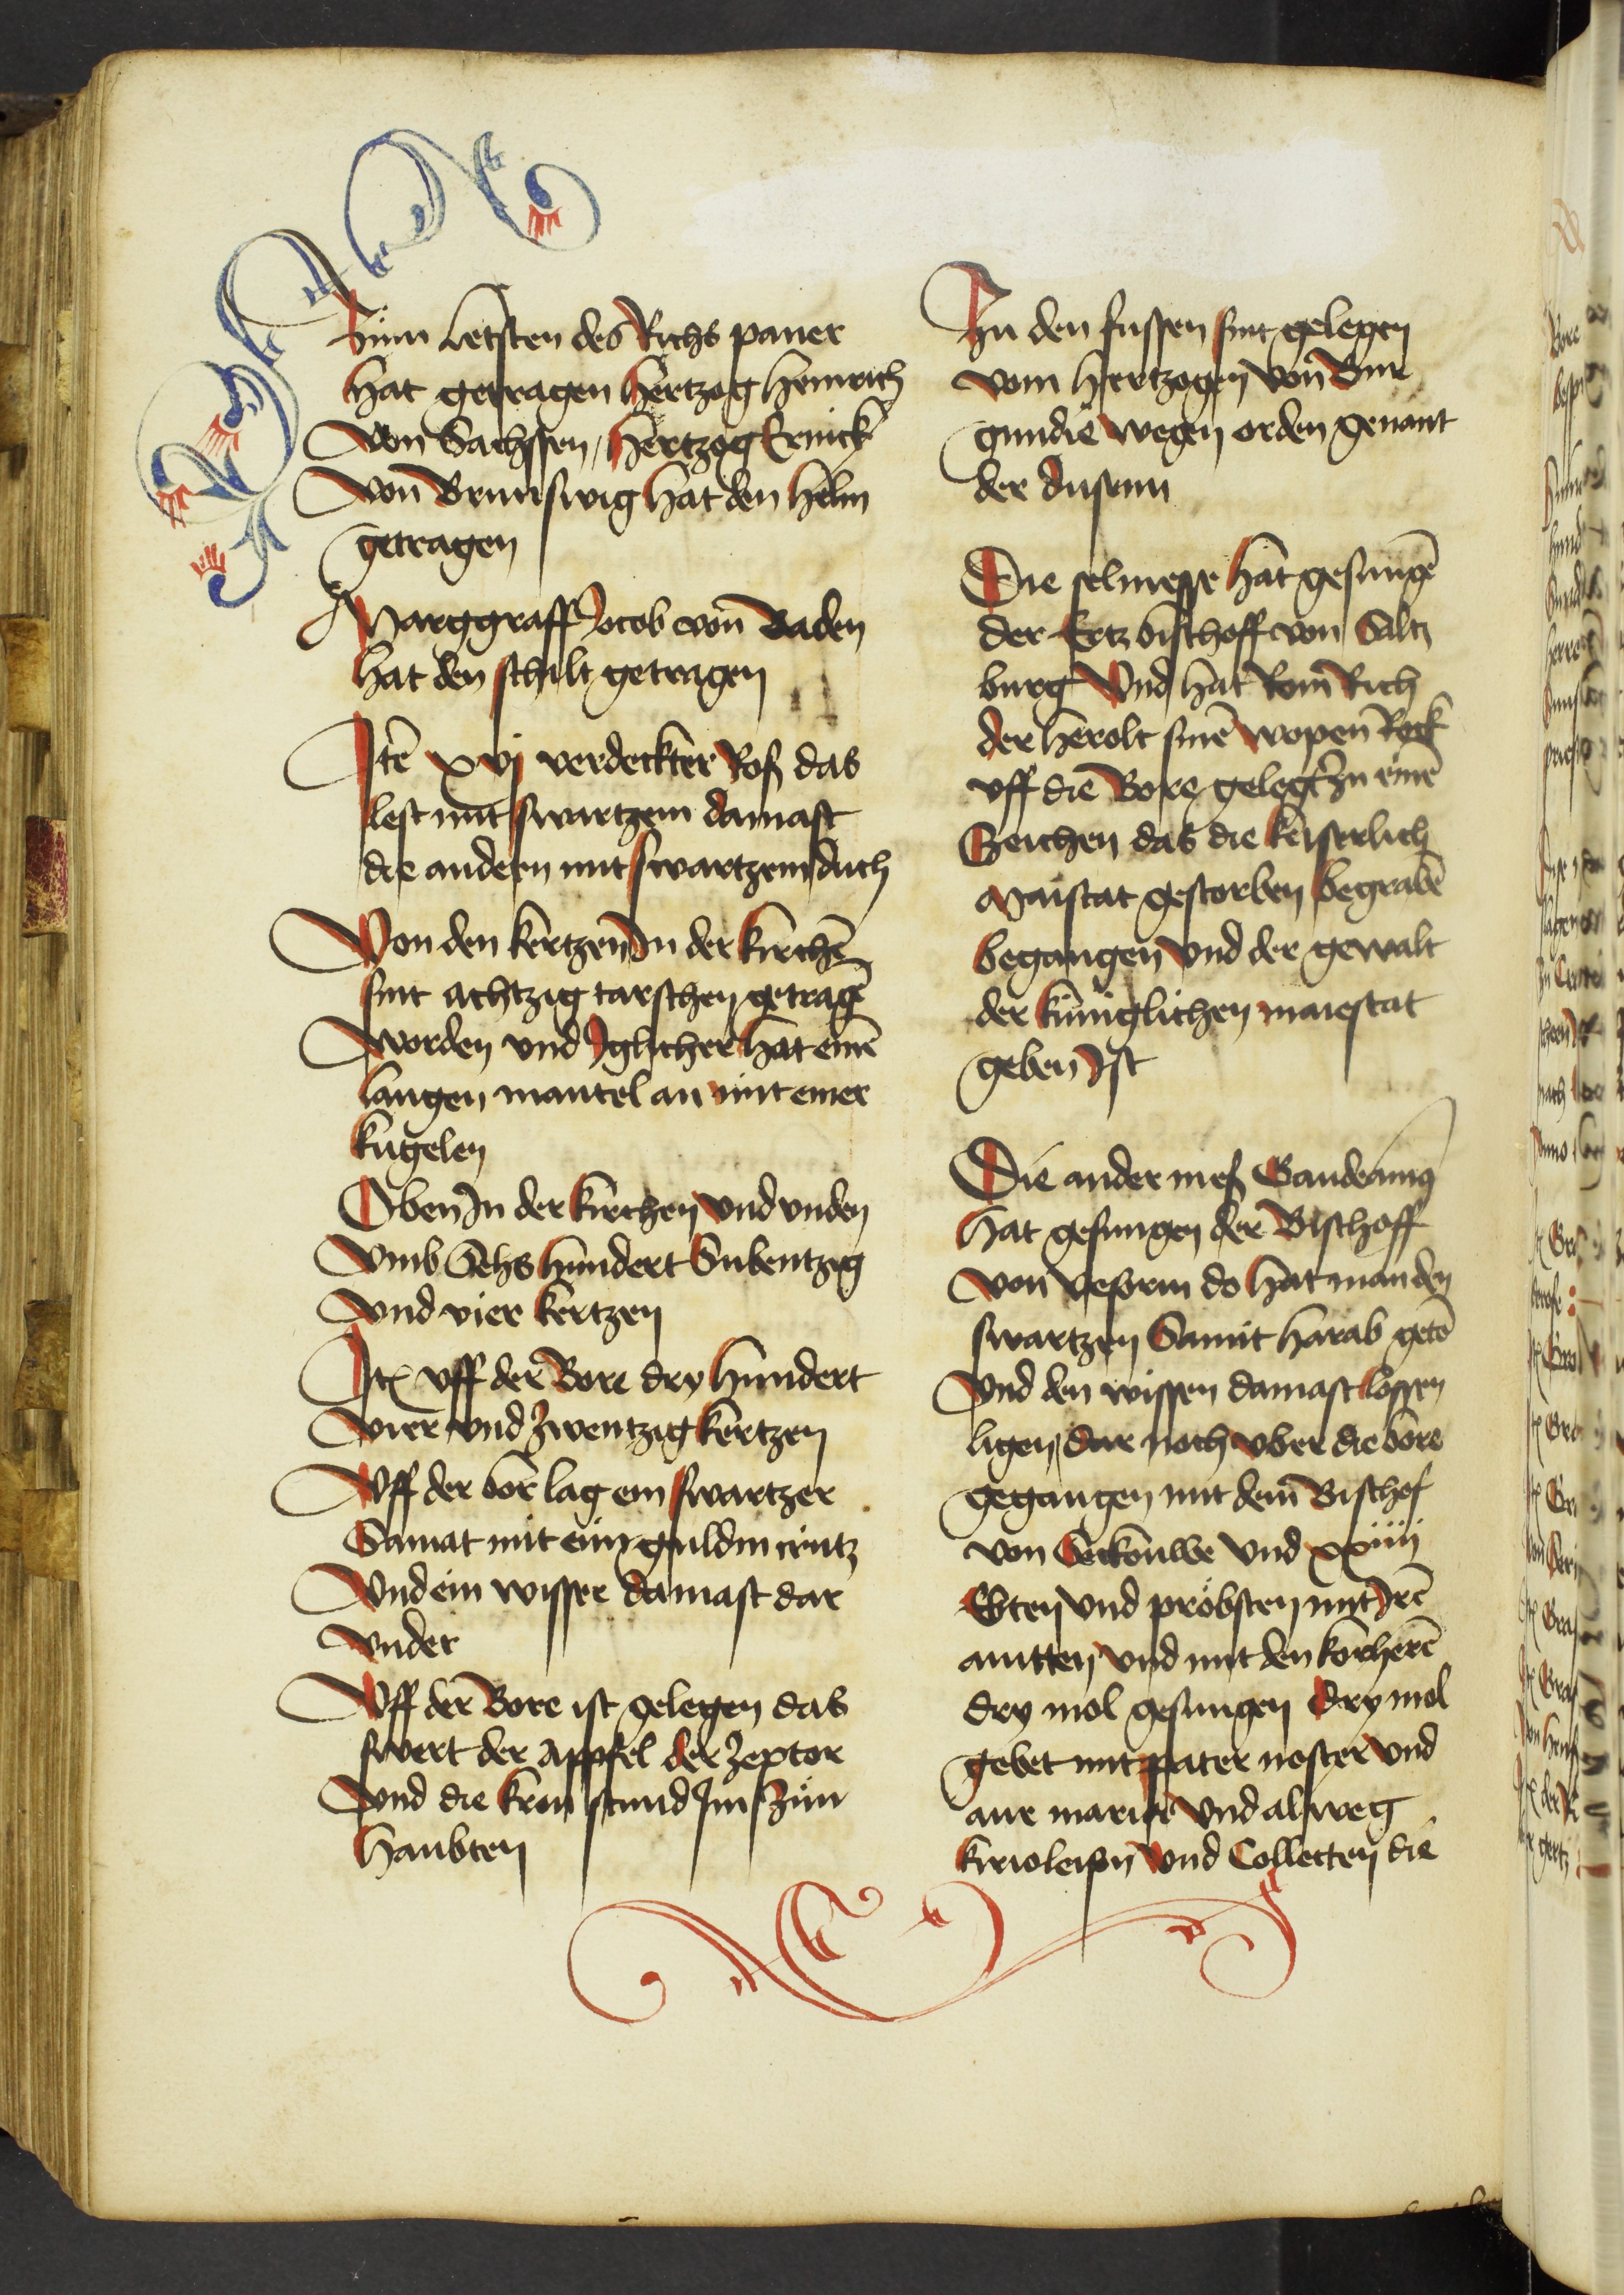 Zům Letsten des Richs paner
hat getragen hertzog heinrich
von Sachssen, hertzog Erinck
von Brunswig hat den helm
getragen
Marggraff Jocob von Baden
hat den schilt getragen
Jtē xvj verdeckter Roß das
lest mit swartzem damast
die andern mit swartzem duch
Von den kertzen Jn der kirchē
sint achtzig tarschen getragē
worden vnd Jglicher hat einē
langen mantel an mit einer
kugelen
Oben Jn der kirchen vnd vnden
vmb Sehs hundert Subentzig
vnd vier kertzen
Jtē vff der Bore dry hundert
vier vnd zwentzig kertzen
Vff der bor lag ein swartzer
Samat mit eim guldin crutz
Vnd ein wisser damast dar
vnder
Vff der Bore ist gelegen das
swert der appfel der zeptor
vnd die kron stund Jm zům
haubten
Zu den fussen sint gelegen
vom hertzogen von Bur
gundie wegen orden genant
der
Die selmesse hat gesungē
der Ertzbischoff von Saltz
burg Vnd hat Rom Rich
der herolt sinē wopen Rock
vff die Bore gelegt zu einē
Zeichen das die keiserlich
Maistat gestorben begrabē
begangen vnd der gewalt
der küniglichen maiestat
geben Jst
Die ander meß Gaudeamus
hat gesungen der Bischoff
von vesprin do hat man den
swartzen Samit harab getō
Vnd den wissen damast lossen
ligen, dar noch vber die bore
gegangen mit dem Bischof
von Seckouwe vnd xxiiij
Ebten vnd pröbsten mit Jrē
ynd mit den korherē
dry mol gesungen dry mol
gebet mit pater noster vnd
aue maria vnd alweg
kirioleison vnd Collecten die